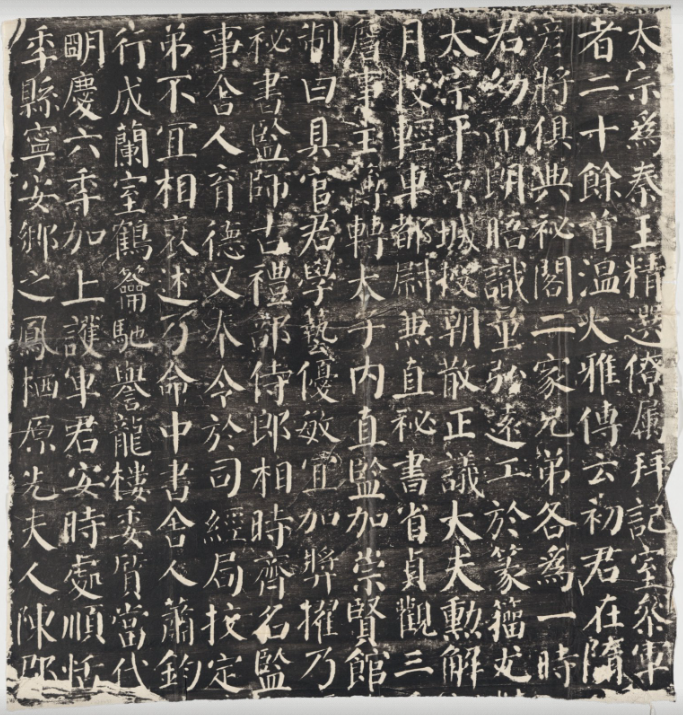 太宗爲秦王精選僚属拜記室叅軍
者二十餘首温大雅傳云初君在隋
彦將俱典祕閣二家兄弟各爲一時
君幼而朗晤識量弘遠工於篆籀尤
太宗平京城授朝散正議大夫勳解
月授輕車都尉兼直秘書省貞觀三
詹事主簿轉太子内直監加崇賢館
制曰具官君學藝優敏宜加奬擢乃
秘書監師古禮部侍郎相時齊名監
事舍人育德又奉令於司經局挍定
弟不宜相褒述乃命中書舍人蕭鈞
行成蘭室鶴籥馳譽龍樓委質當代
朙慶六年加上護軍君安時處順恬
年縣寧安鄉之鳳栖原先夫人陳郡